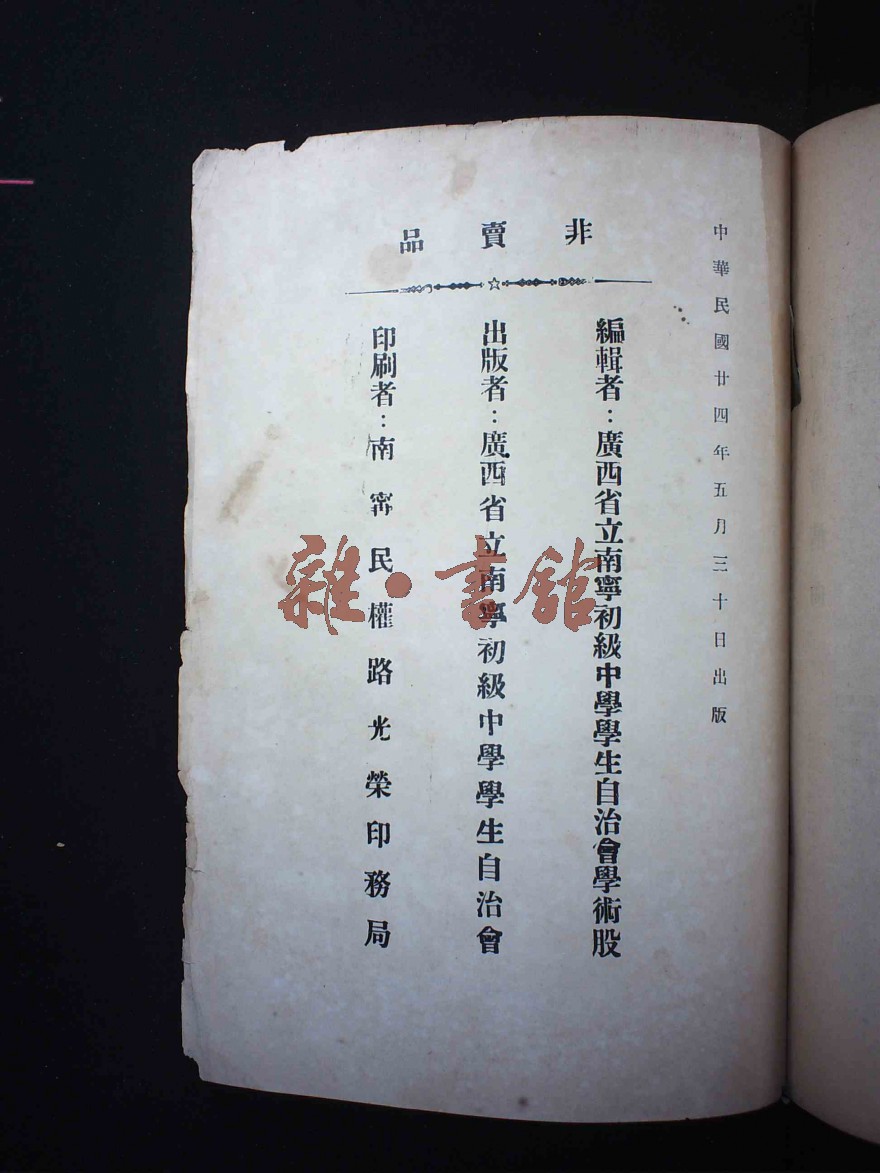 中華民國廿四年五月三十日出版
非賣品
編輯者：廣西省立南寧初級中學學生自治會學術股
出版者：廣西省立南寧初級中學學生自治會
印刷者：南甯民權路光榮印務局
雜·書館